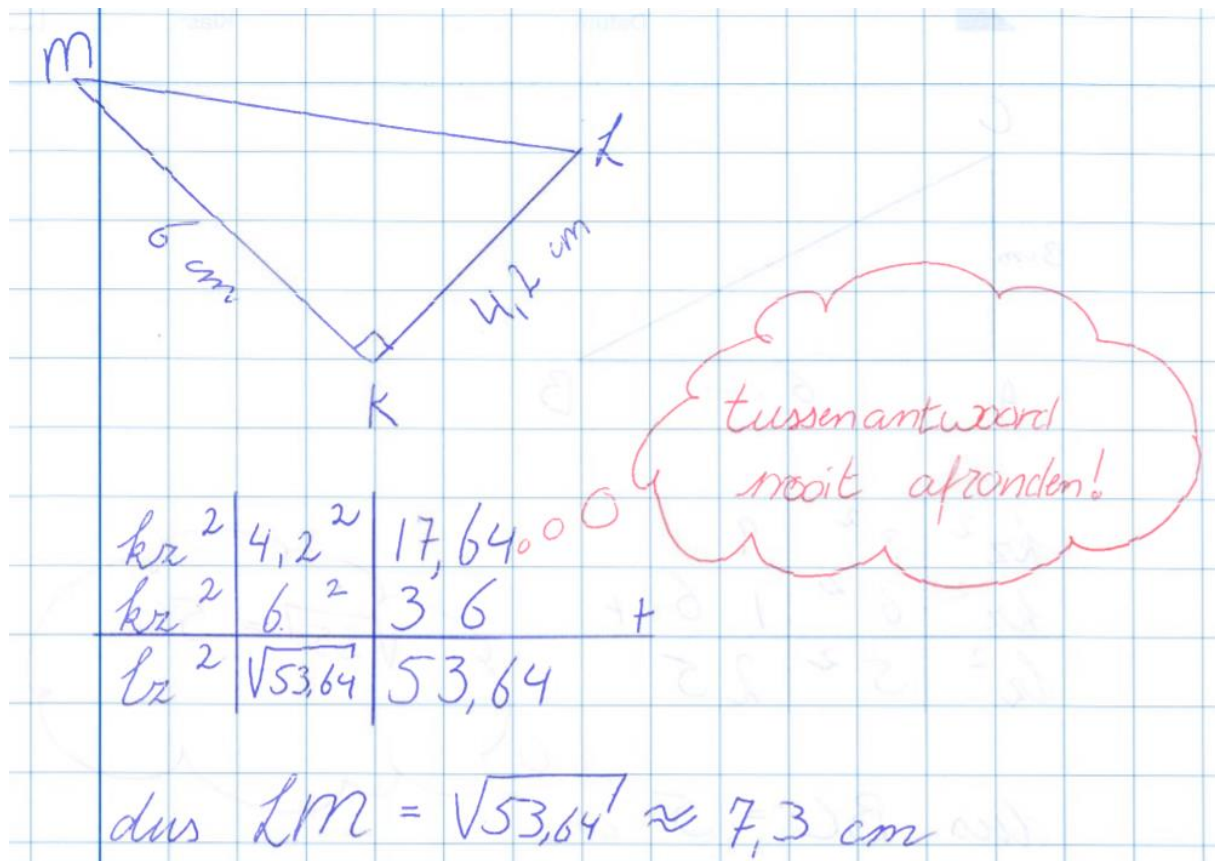 M
L
6 cm
4,2 cm
K
tussenantwoord
nooit afronden!
kz² | 4,2² | 17,64
kz² | 6² | 36 +
lz² | √53,64 | 53,64
dus LM = √53,64 ≈ 7,3 cm